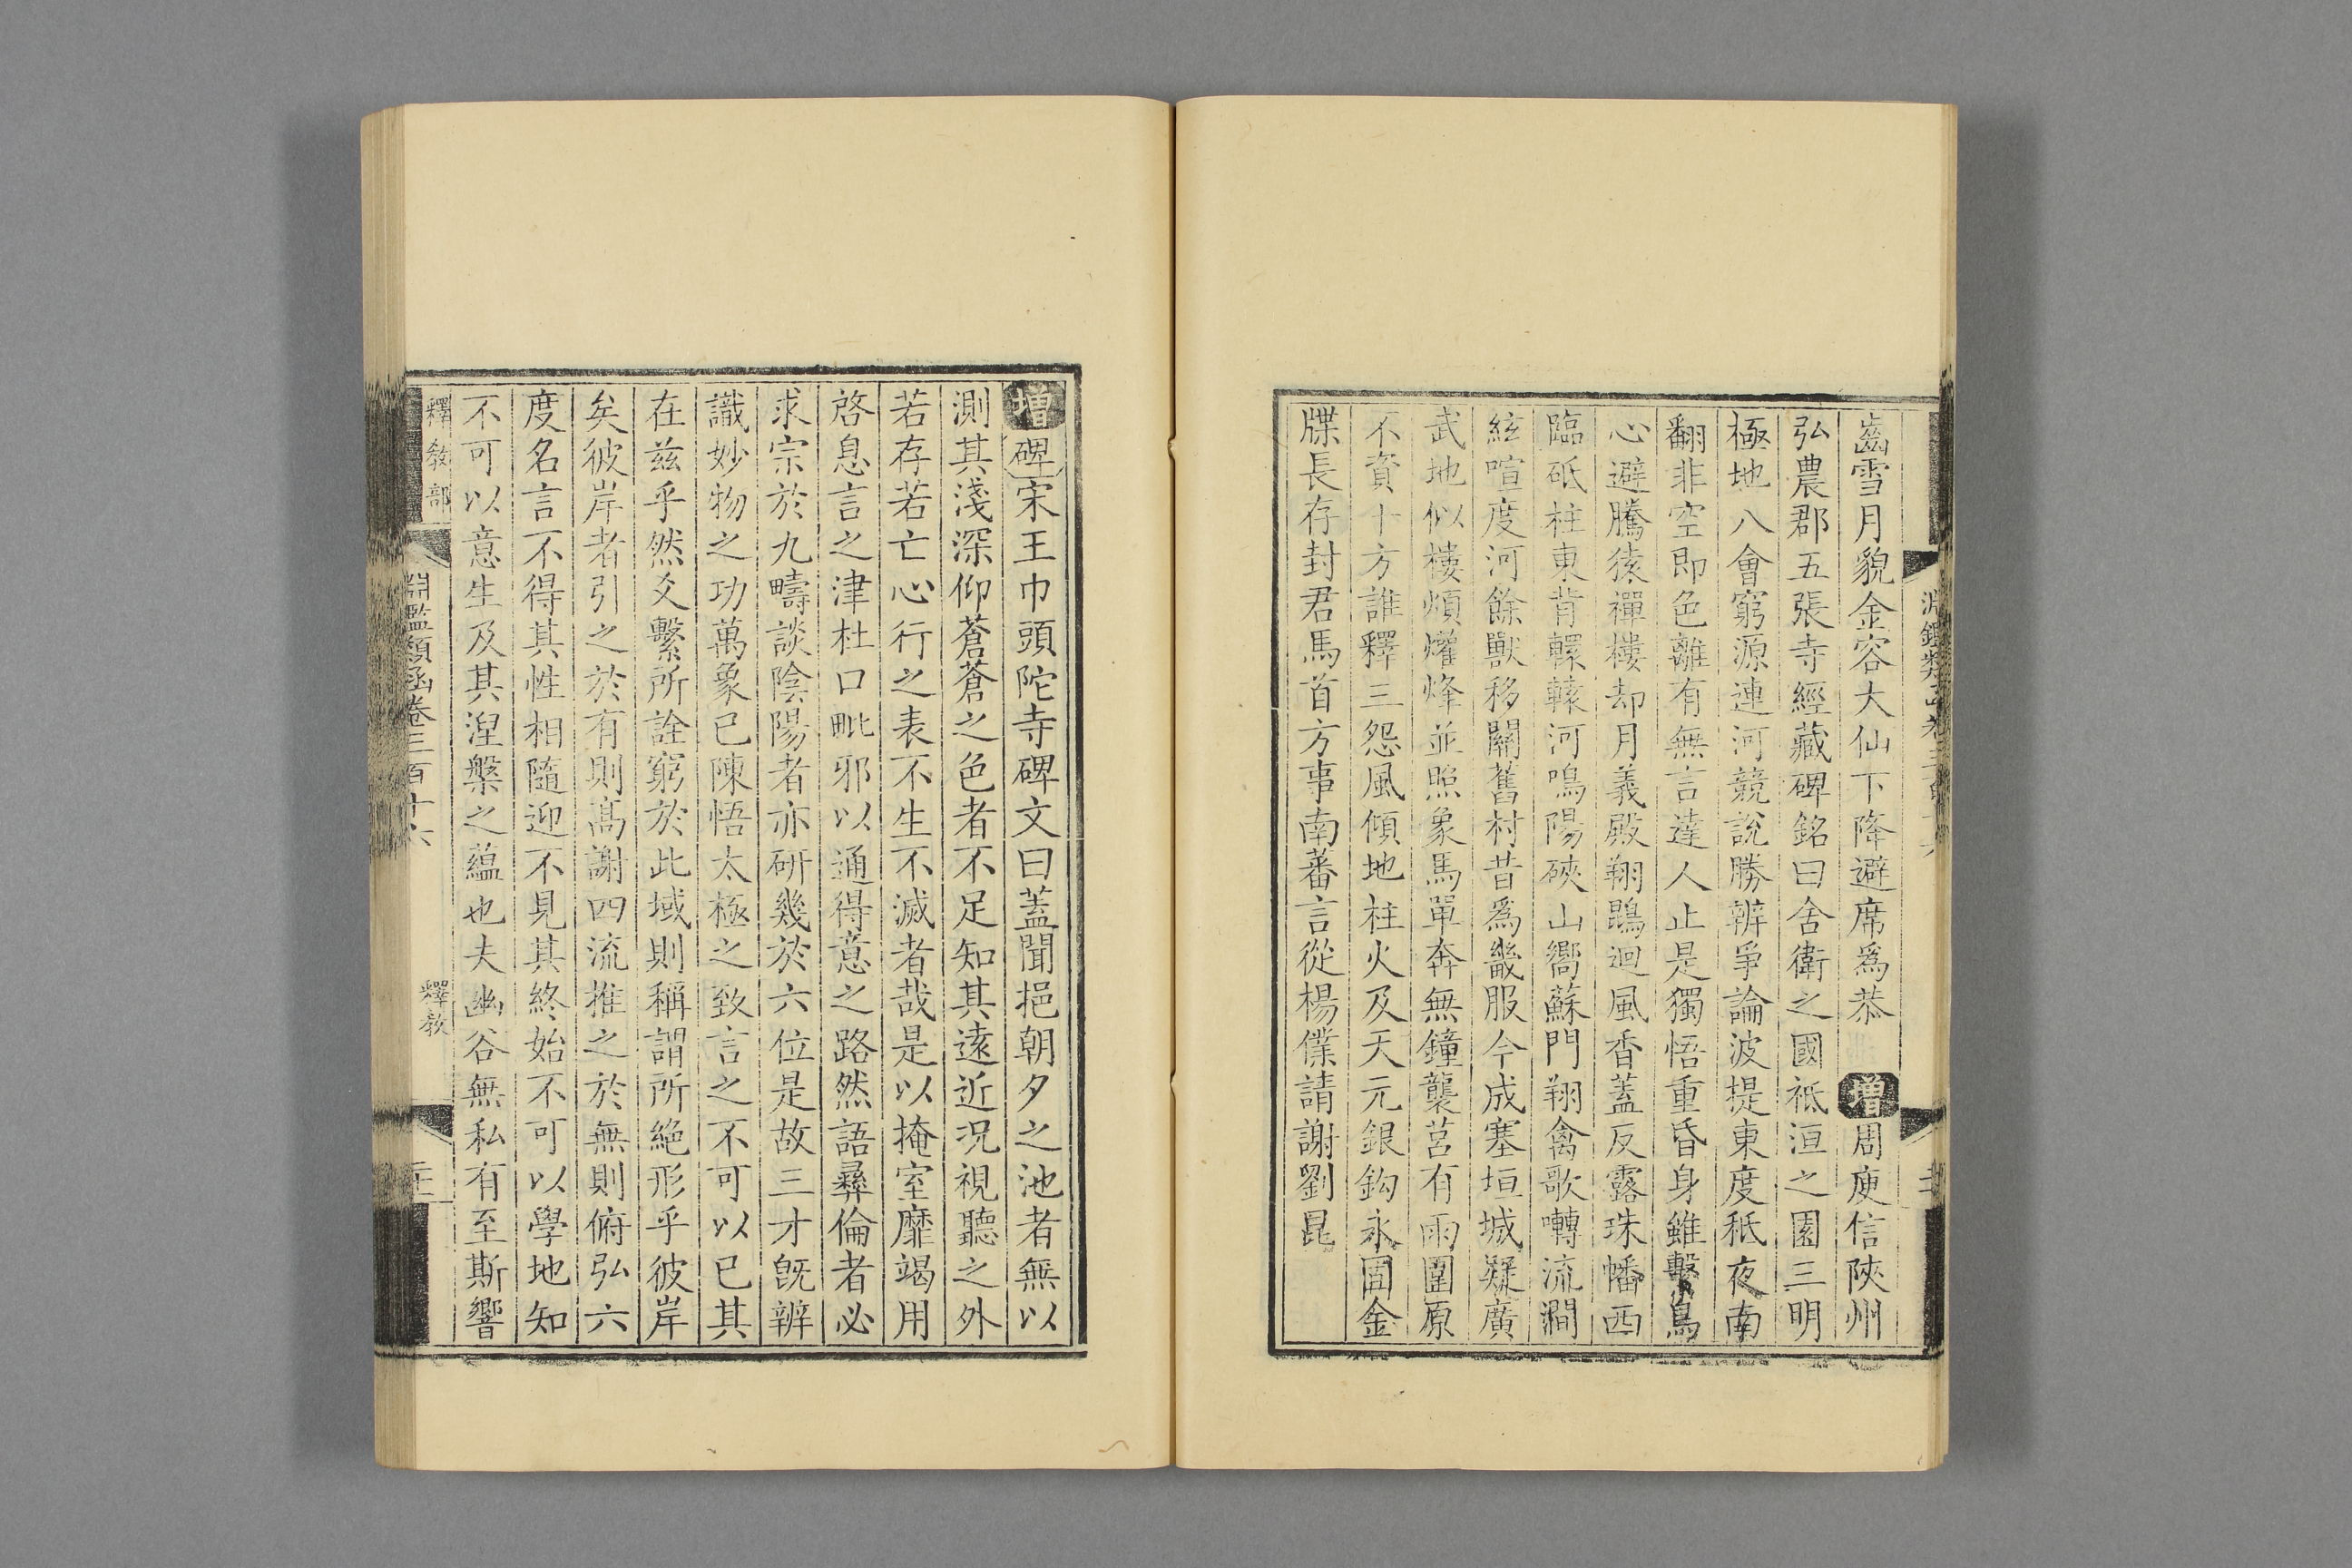 齒雪月貌金容大仙下降避席爲恭 增周庾信陝州
弘農郡五張寺經藏碑銘曰舍衛之國祗洹之園三明
極地八會窮源連河競說勝辨爭論波提東度秖夜南
翻非空即色離有無言達人止是獨悟重昏身雖擊鳥
心避騰猿禪樓却月義殿翔鵾迴風香蓋反露珠幡西
臨砥柱東背轘轅河鳴陽硤山嚮蘇門翔禽歌囀流澗
絃喧度河餘獸移關舊村昔爲畿服今成塞垣城疑廣
武地似樓煩爟烽並照象馬單奔無鐘襲莒有雨圍原
不資十方誰釋三怨風傾地柱火及天元銀鈎永固金
牒長存封君馬首方事南蕃言從楊僕請謝劉昆
增碑宋王巾頭陀寺碑文曰蓋聞挹朝夕之池者無以
測其淺深仰蒼蒼之色者不足知其遠近況視聽之外
若存若亡心行之表不生不滅者哉是以掩室靡竭用
啓息言之津杜口毗邪以通得意之路然語彝倫者必
求宗於九疇談陰陽者亦研幾於六位是故三才旣辨
識妙物之功萬象已陳悟太極之致言之不可以已其
在茲乎然爻繫所詮窮於此域則稱謂所絕形乎彼岸
矣彼岸者引之於有則高謝四流推之於無則俯弘六
度名言不得其性相隨迎不見其終始不可以學地知
不可以意生及其涅槃之蘊也夫幽谷無私有至斯響
釋敎部 淵鑑類函卷三百十六 釋教